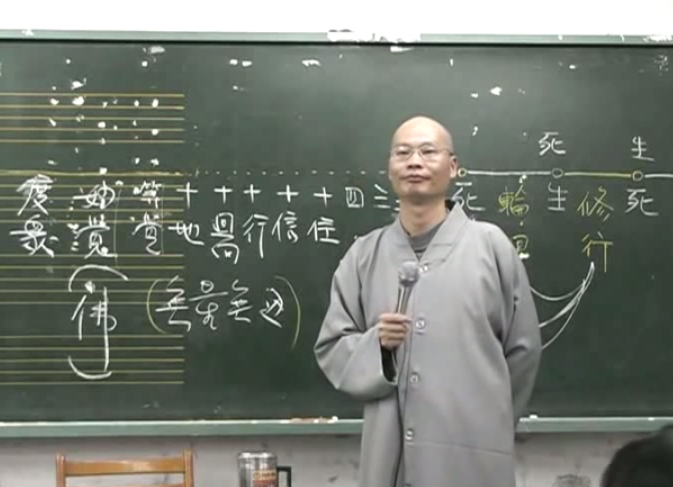 死 生
度 妙 等 十 十 十 十 十 四 三 死 輪 生 修 死
眾 覺 覺 地 行 信 住 回 行
佛 (無量無邊)